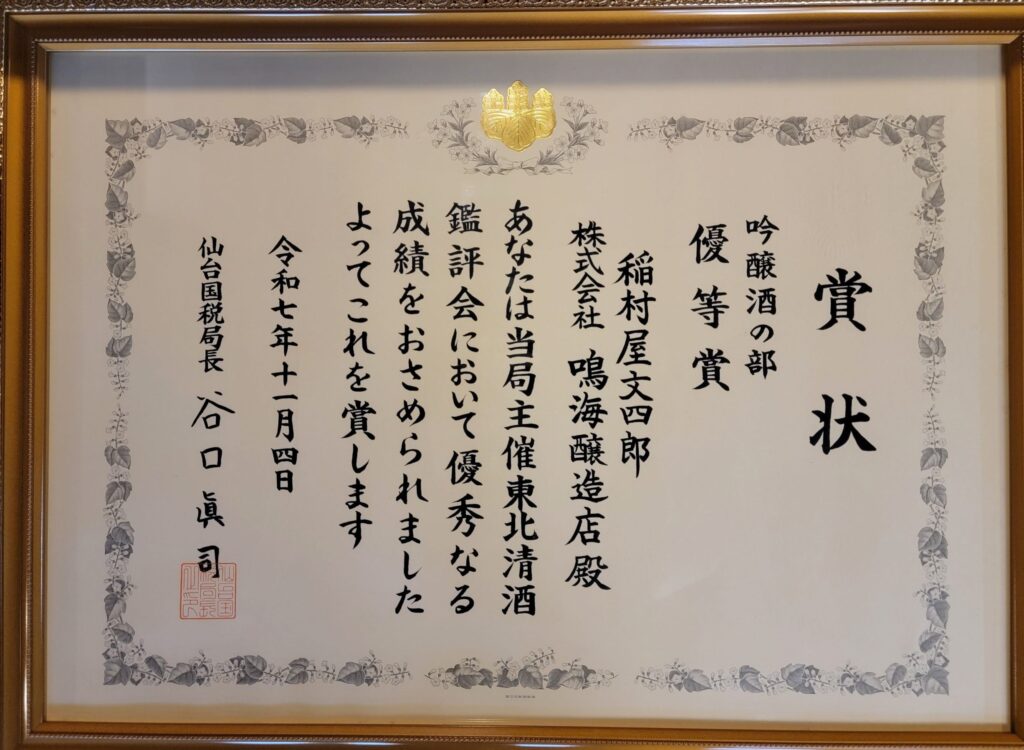 賞状
吟醸酒の部
優等賞
稲村屋文四郎
株式会社 鳴海醸造店殿
あなたは当局主催東北清酒
鑑評会において優秀なる
成績をおさめられました
よってこれを賞します
令和七年十一月四日
仙台国税局長 谷口眞司